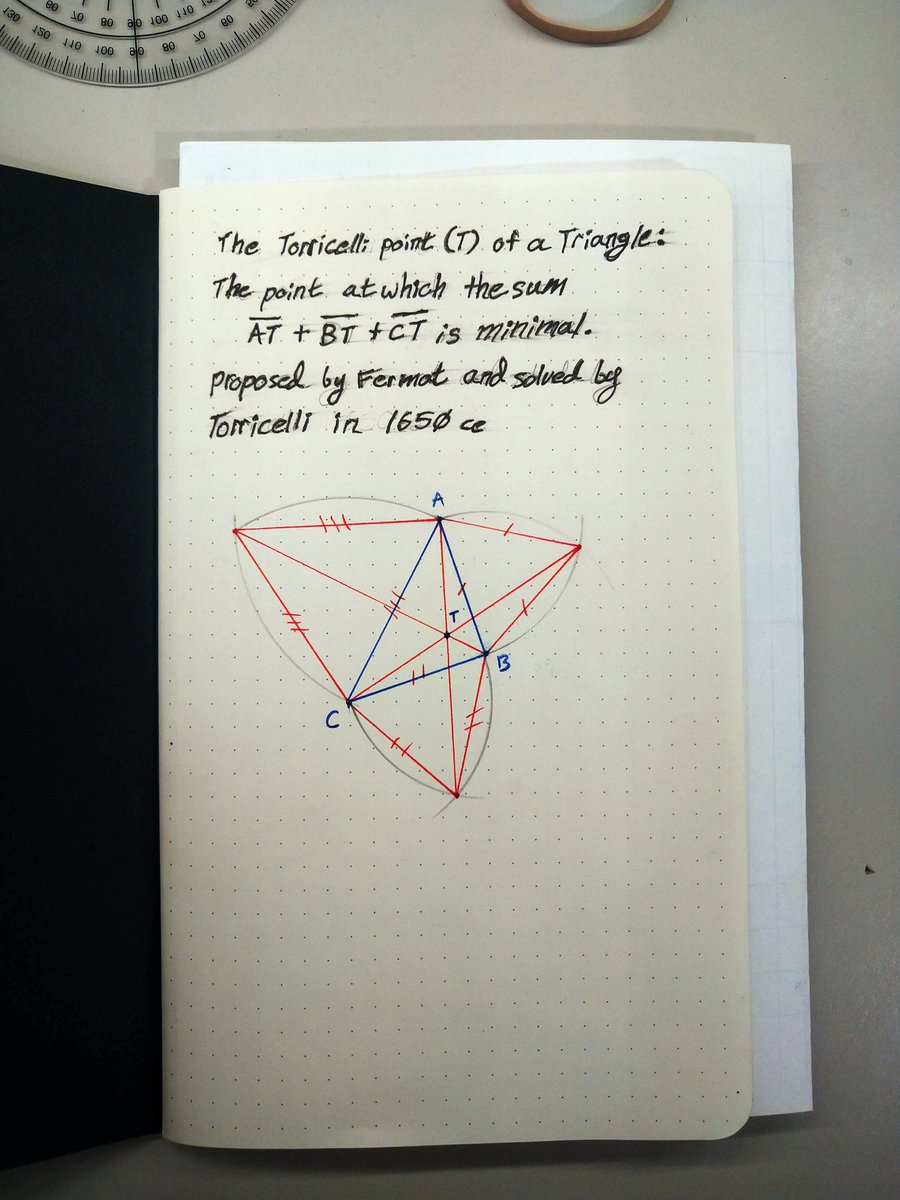 130 120 110 100 90 80 70 60 50
50 60 70 80 90 100 110 120 130
The Torricelli point (T) of a Triangle:
The point at which the sum
A̅T̅ + B̅T̅ + C̅T̅ is minimal.
Proposed by Fermat and solved by
Torricelli in 1650 ce
A
T
B
C